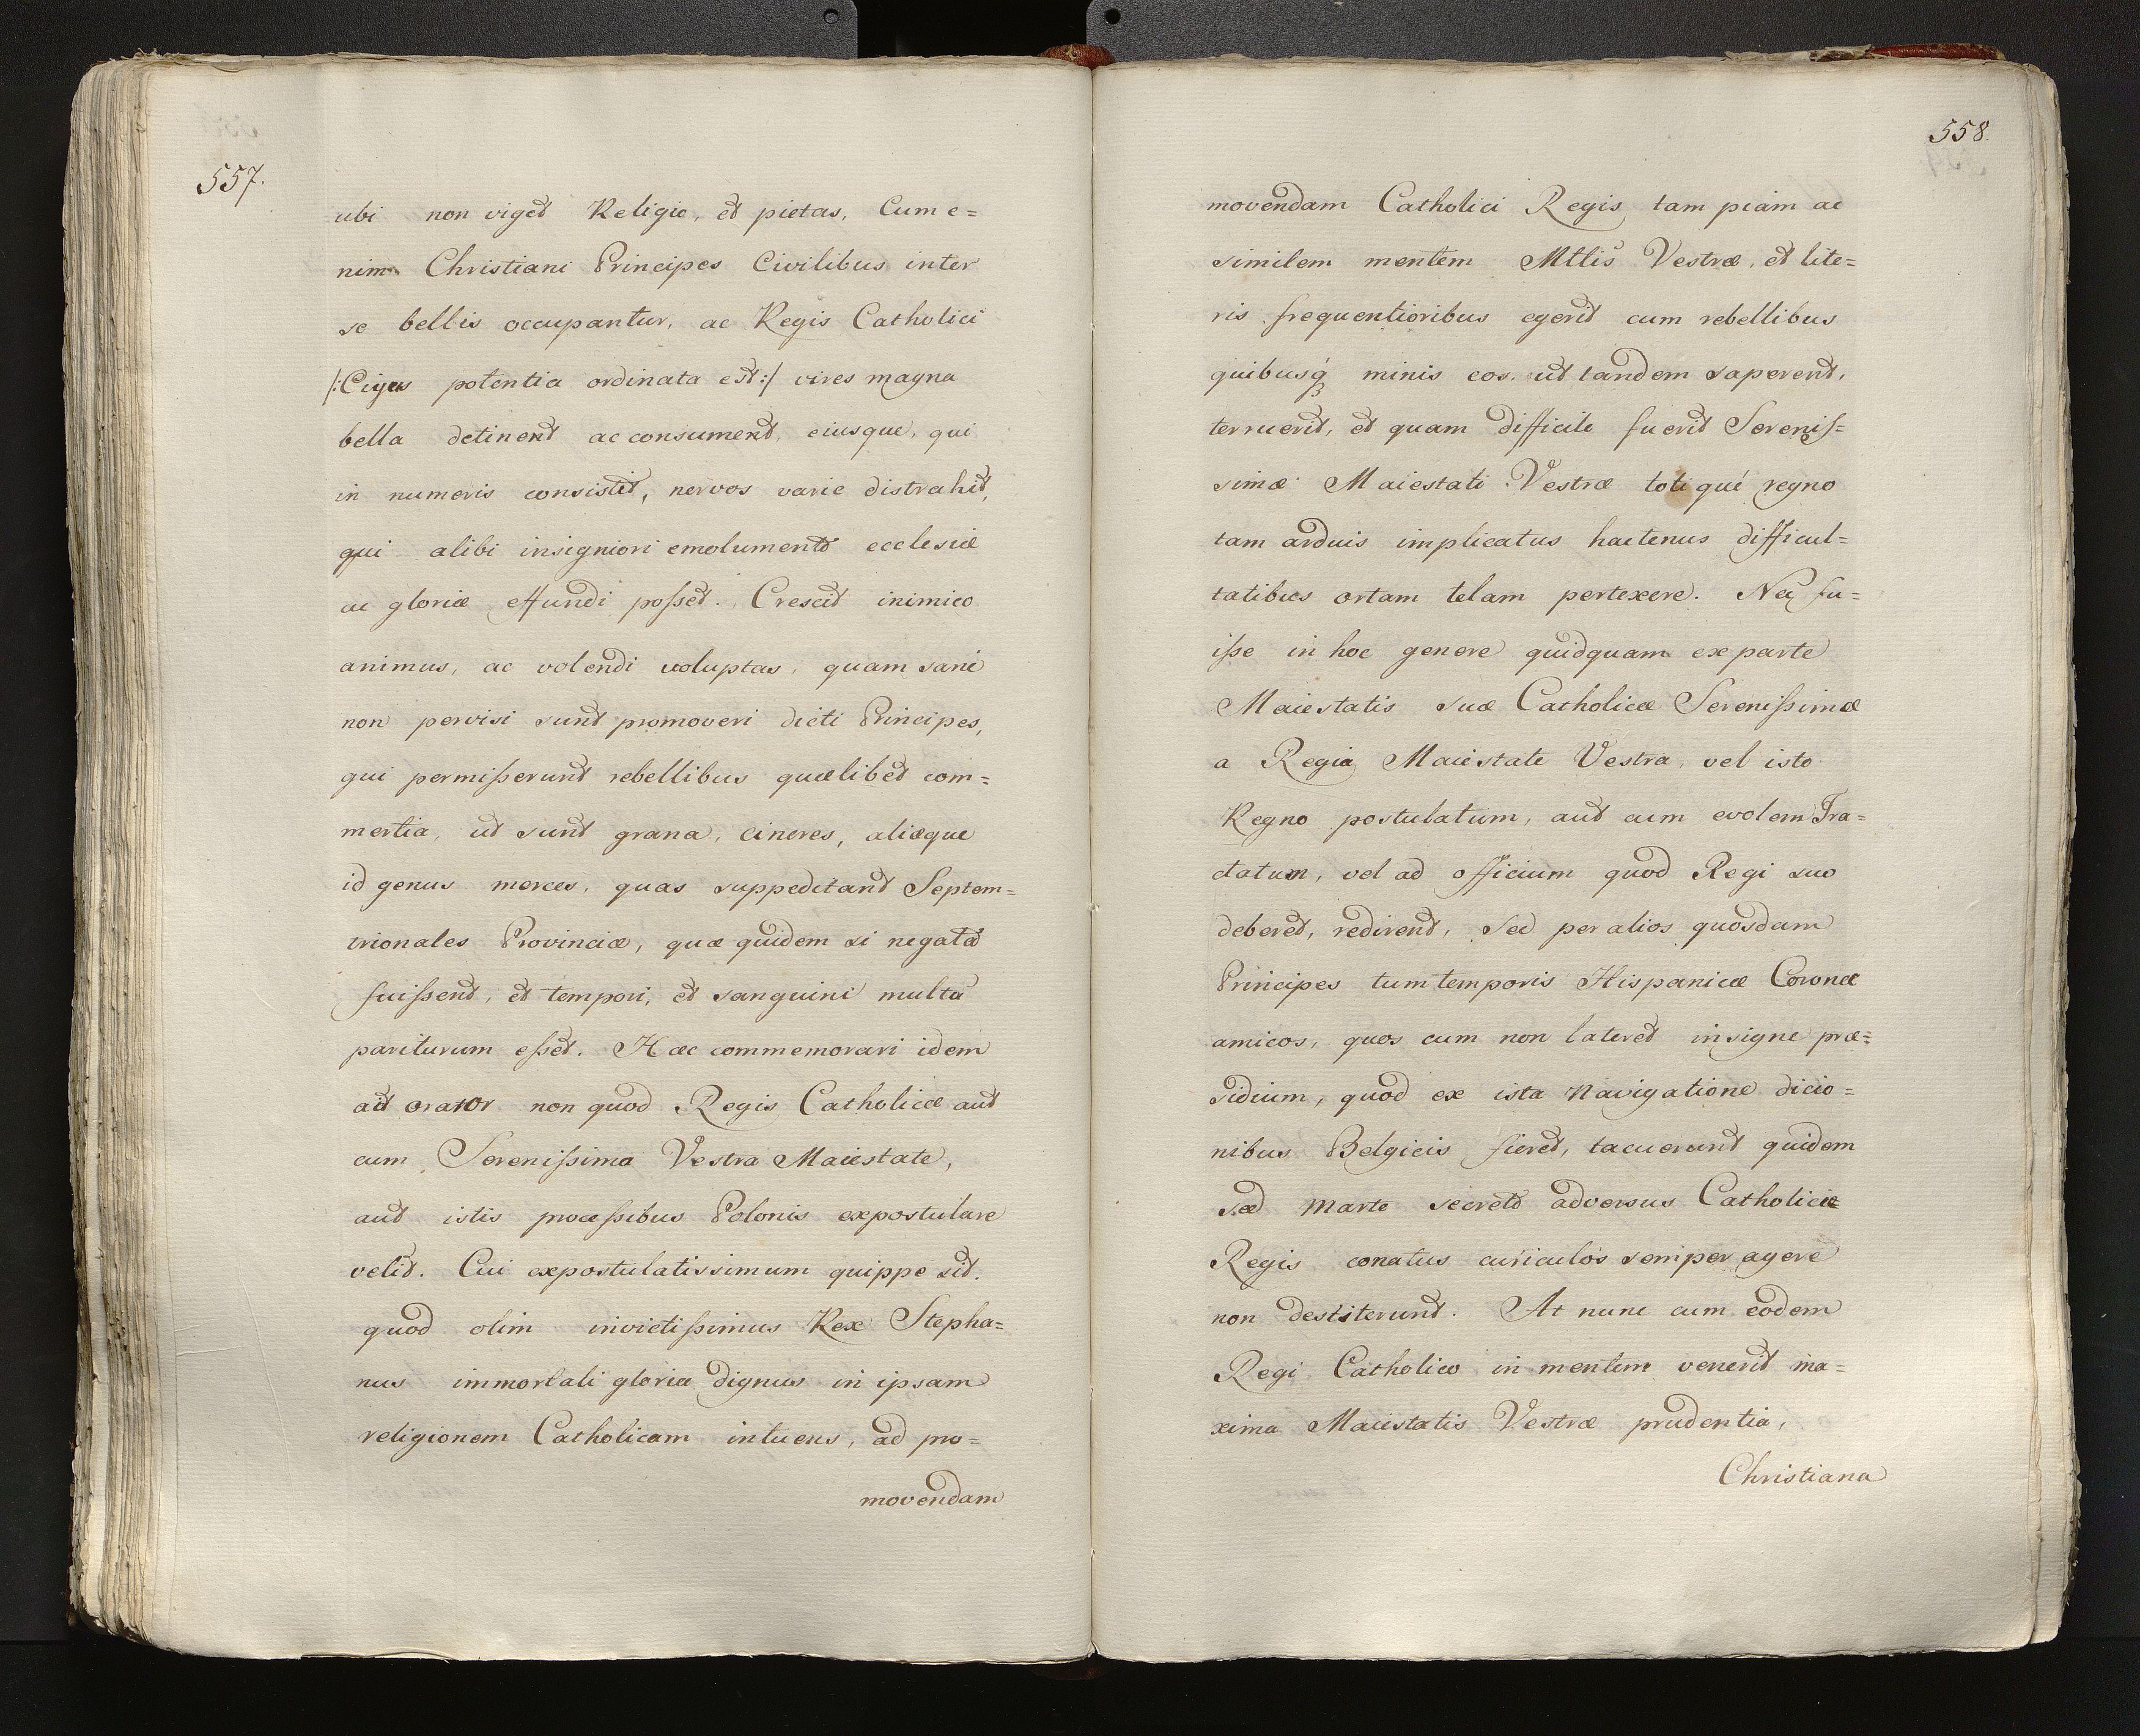 557.
ubi non viget Religio, et pietas, Cum e=
nim Christiani Principes Civilibus inter
se bellis occupantur, ac Regis Catholici
/:Cujus potentia ordinata est:/ vires magna
bella detinent ac consument, eiusque, qui
in numeris consistit, nervos varie distrahit,
qui alibi insigniori emolumento ecclesiæ
ac gloriæ effundi posset. Crescit inimico
animus, ac volendi voluptas, quam sane
non pervisi sunt promoveri dicti Principes,
qui permisserunt rebellibus quælibet com=
mertia, ut sunt grana, cineres, aliæque
id genus merces, quas suppeditant Septem=
trionales Provinciæ, quæ quidem si negata
fuissent, et tempori, et sanguini multa
pariturum esset. Hæc commemorari idem
ait orator non quod Regis Catholicæ aut
cum Serenissima Vestra Maiestate,
aut istis processibus Polonis expostulare
velit. Cui expostulatissimum quippe sit.
quod olim invictissimus Rex Stepha=
nus immortali gloria dignus in ipsam
religionem Catholicam intuens, ad pro=
movendam
558.
movendam Catholici Regis tam piam ac
similem mentem Mttis Vestræ, et lite=
ris frequentioribus egerit cum rebellibus
quibusq́ minis eos, ut tandem saperent,
terruerit, et quam difficile fuerit Sereniss=
simæ Maiestati Vestræ totique regno
tam arduis implicatus hactenus difficul=
tatibus ortam telam pertexere. Nec fu=
isse in hoc genere quidquam ex parte
Maiestatis suæ Catholicæ Serenissimæ
a Regia Maiestate Vestra, vel isto
Regno postulatum, aut cum evolem Tra=
ctatum, vel ad officium quod Regi suo
deberet, redirent, Sed per alios quosdam
Principes tum temporis Hispanicæ Coronæ
amicos, quos cum non lateret insigne præ=
sidium, quod ex ista Navigatione dicio=
nibus Belgicis fieret, tacuerunt quidem
sed Marte secreto adversus Catholicæ
Regis conatus curiculos semper agere
non destiterunt. At nunc cum eodem
Regi Catholico in mentem venerit ma=
xima Maiestatis Vestræ prudentia,
Christiana